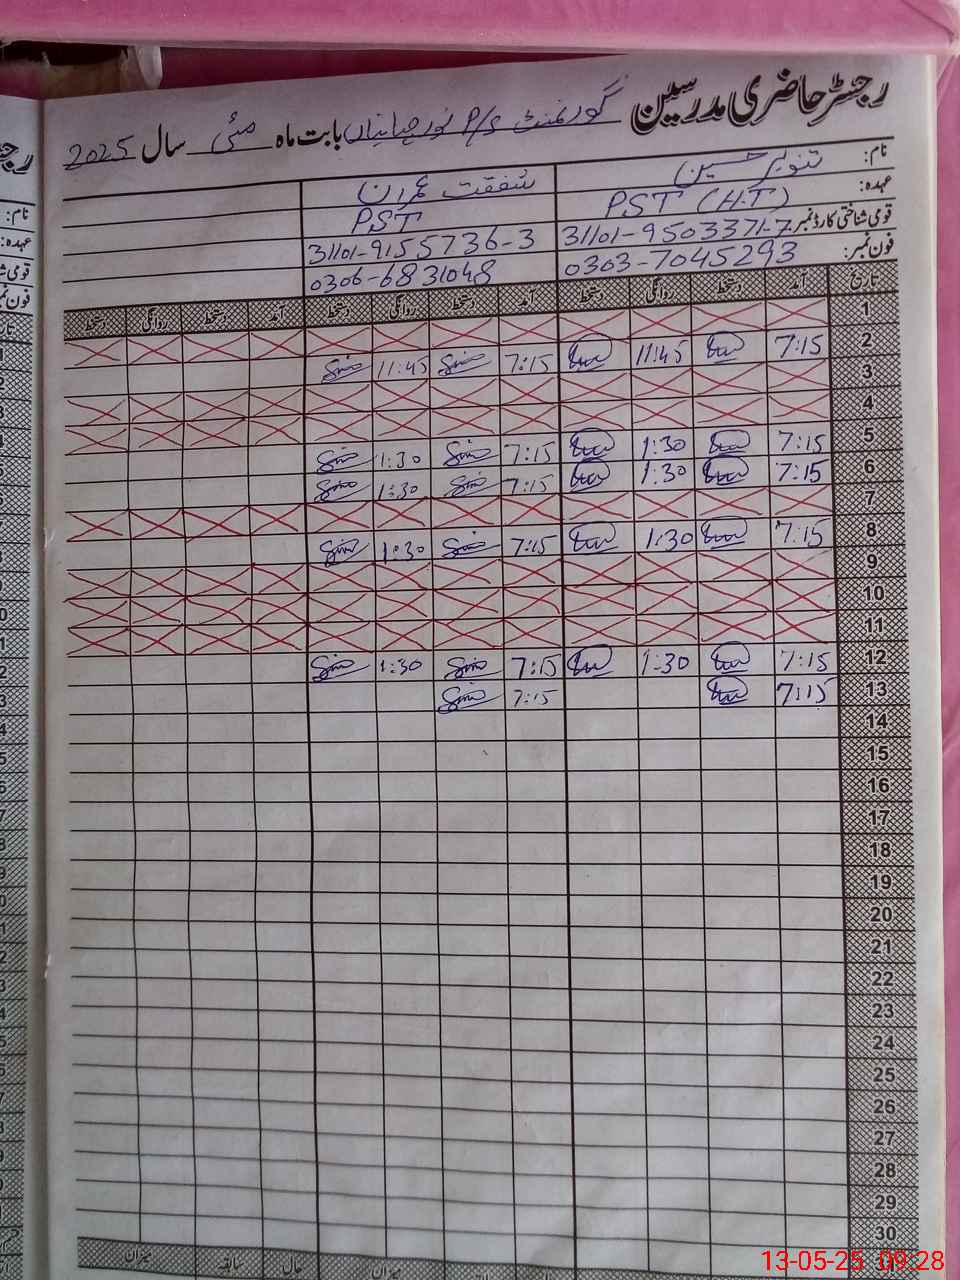 رجسٹر حاضری مدرسین گورنمنٹ P/S نور جہانیاں بابت ماہ مئی سال 2025
نام: تنویر حسین شفقت عمران
عہدہ: PST (H.T) PST
قومی شناختی کارڈ نمبر: 31101-9503371-7 31101-9155736-3
فون نمبر: 0303-7045293 0306-6831048
تاریخ آمد دستخط روانگی دستخط آمد دستخط روانگی دستخط آمد دستخط روانگی دستخط
1
2 7:15 11:45 7:15 11:45
3
4
5 7:15 1:30 7:15 1:30
6 7:15 1:30 7:15 1:30
7
8 7:15 1:30 7:15 1:30
9
10
11
12 7:15 1:30 7:15 1:30
13 7:15 7:15
14
15
16
17
18
19
20
21
22
23
24
25
26
27
28
29
30
میزان حال سابقہ میزان
13-05-25 09:28